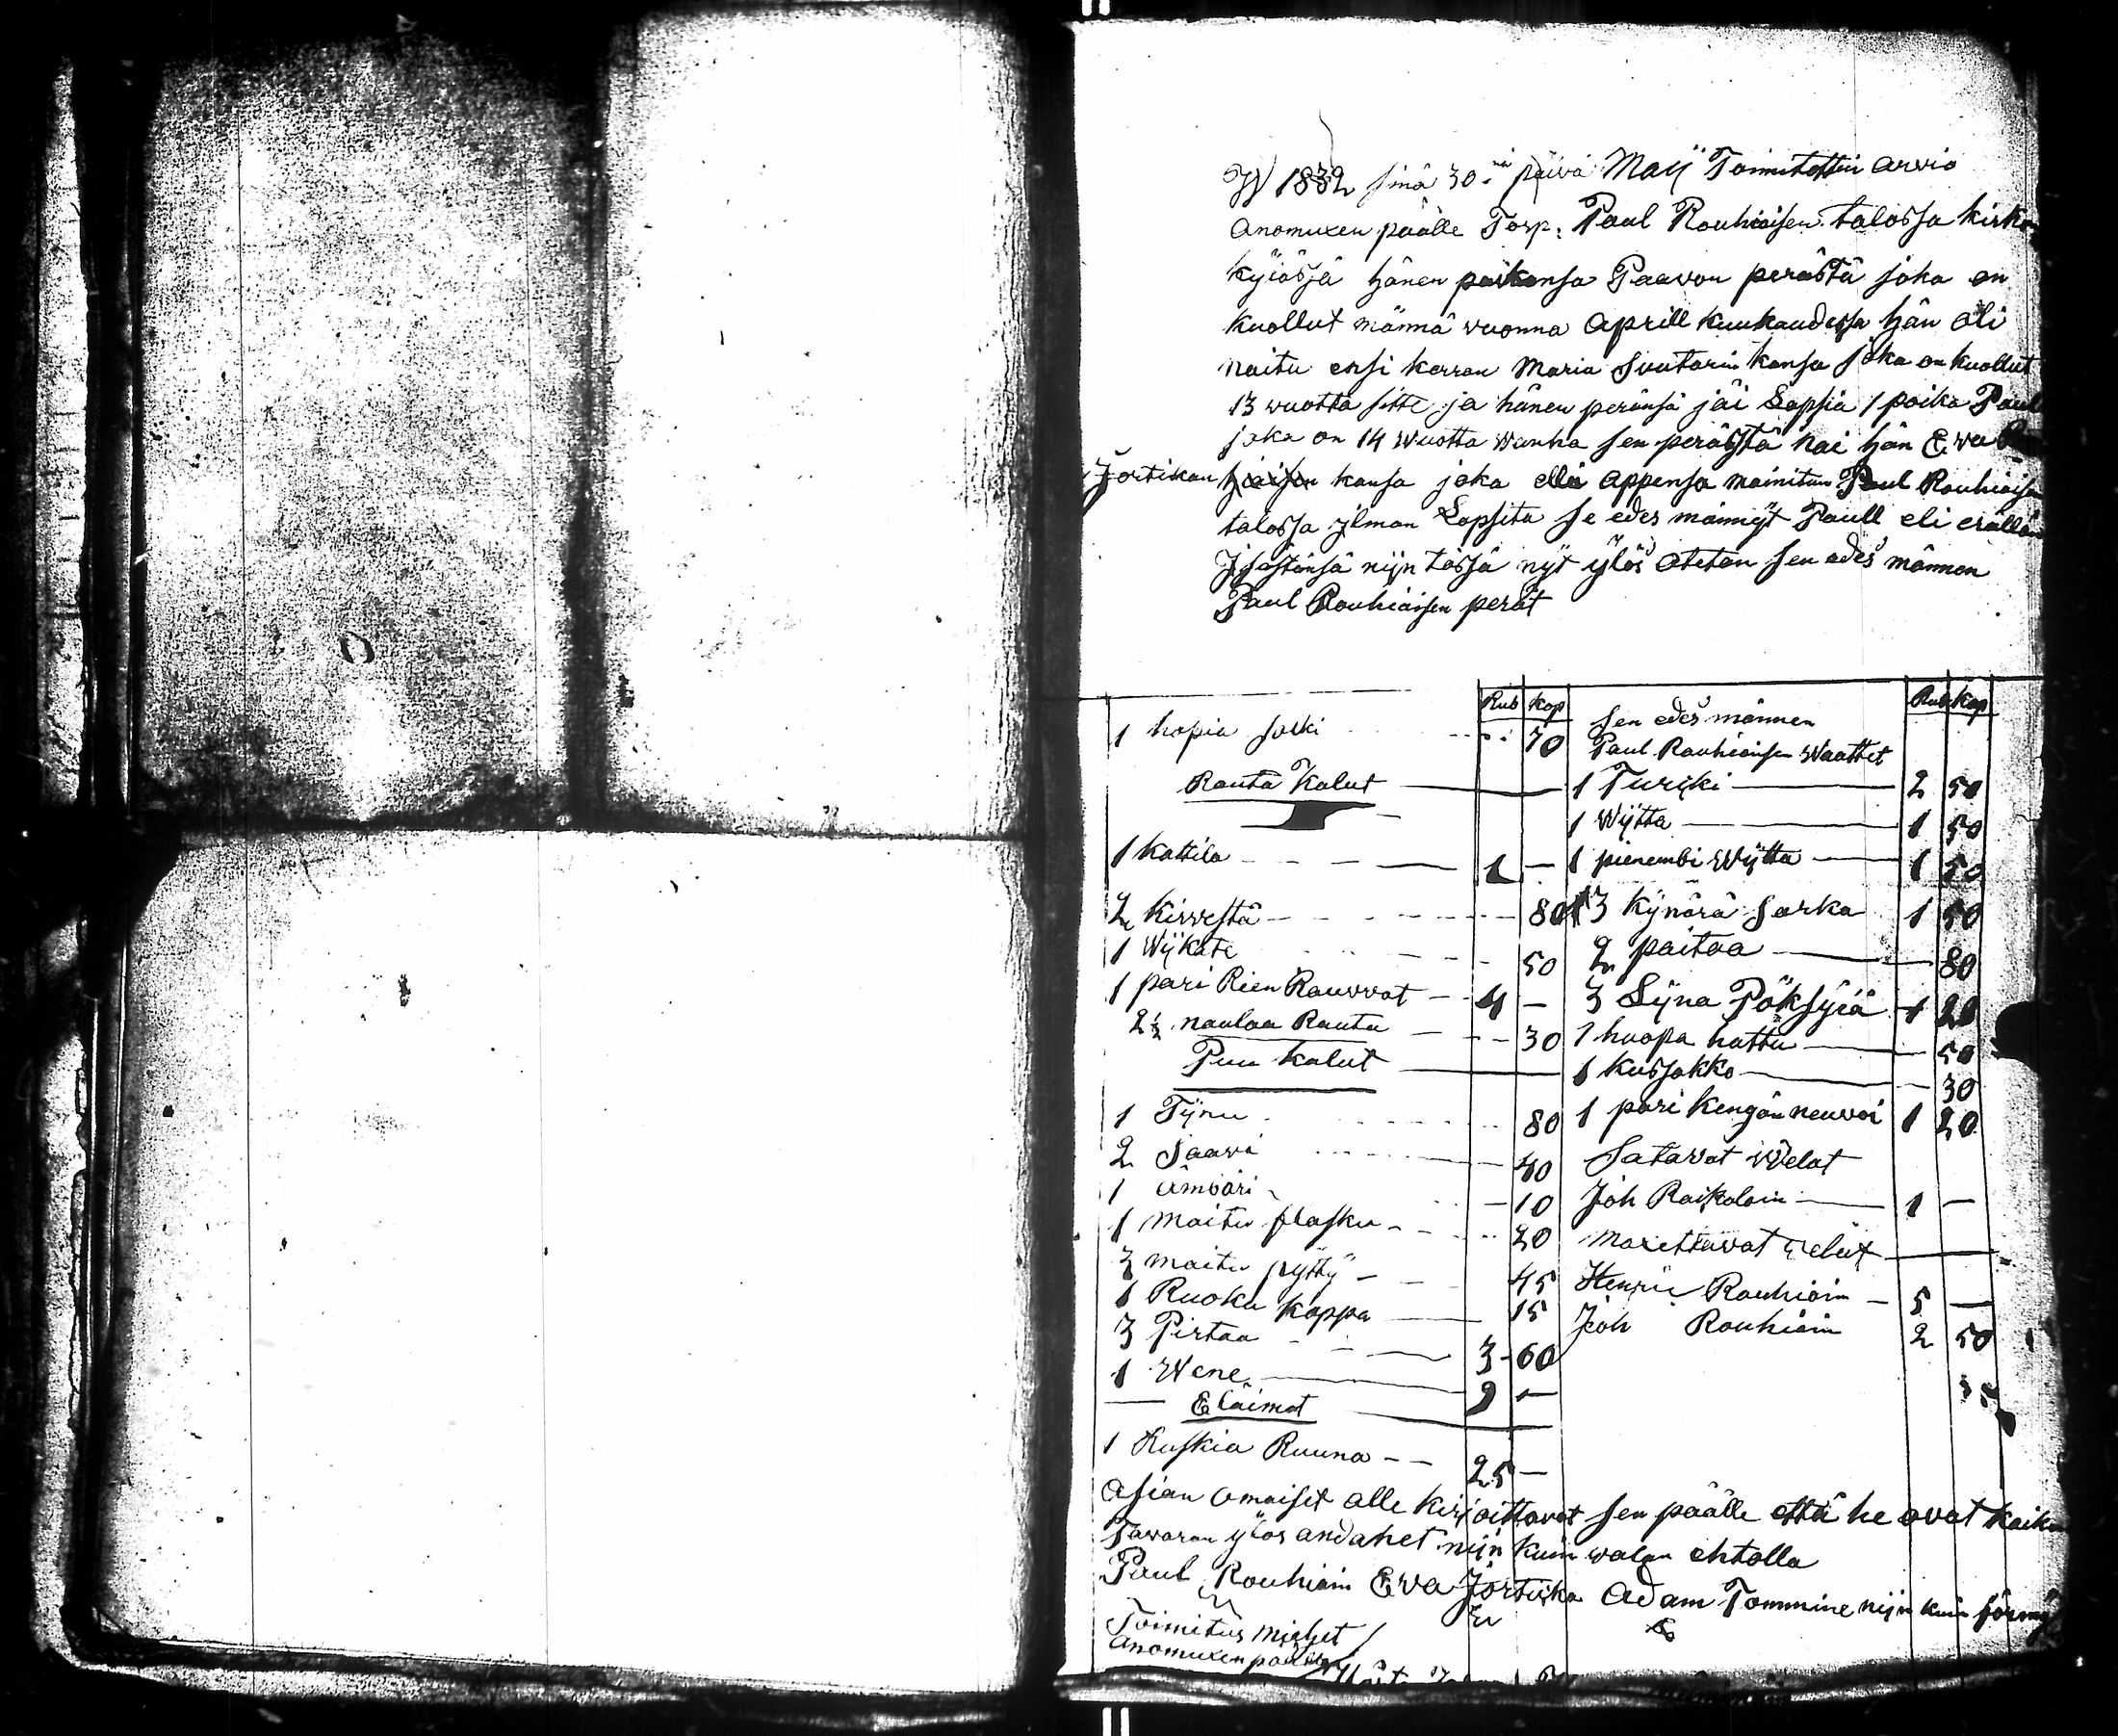 W 1832 sinä 30:nä päivä Maij Toimitettin arvio
anomuxen päälle Torp: Paul Rouhiaisen talossa kirko
kyläsjä hänen poikansa Paavon perästä joka on
kuollut männä vuonna Aprill kuukaudessa hän oli
naitu ensi kerran Maria Suutarin kansa joka on kuollut
13 vuotta sitte ja hänen peränsä jäi Lapsia 1 poika Paul
joka on 14 Wuotta wanha sen perästä nai hän Ewa
Jortikan kansa joka elli appensa mainitun Paul Rouhiaisen
talossa jlman Lapsita se edes männyt Paull eli erällän
Jsästänsä nijn tässä nyt ylös otetan sen edes männen
Paul Rouhiaisen perät
Rub kop
1 hopia solki 70
Rauta Kalut
1 kattila 1 —
2 Kirvestä 80
1 Wijkate 50
1 pari Rien Rauvvat 4 —
2½ naulaa Rauta 30
Puu Kalut
1 Tijnu 80
2 Saavi 40
1 ämbäri 10
1 maito flasku 20
3 maito pyttÿ 45
1 Ruoka koppa 15
3 Pirtaa 3 60
1 Wene 9 —
Eläimet
1 Ruskia Ruuna 25 —
Rub kop
Sen edes männen
Paul Rauhiaisen Waattet
1 Turcki 2 50
1 Wijtta 1 50
1 pienembi Wijtta 1 50
13 kynärä sarka 1 50
2 paitaa 80
3 Lijna Pöksyiä 1 20
1 huopa hattu 50
1 kussakko 30
1 pari kengän neuvoi 1 20
Satavat Welat
Joh Raikolain 1 —
Maxettavat velat
Henric Rouhiain 5 —
Joh Rouhiain 2 50
Asian omaiset alle kirjoittavat sen päälle että he ovat kaiken
Tavaran ylös andanet nijn kuin valan ehtolla
Paul Rouhiain Eva Jortikka Adam Tommine nijn kuin
Toimitus miehet
anomuxen päälle